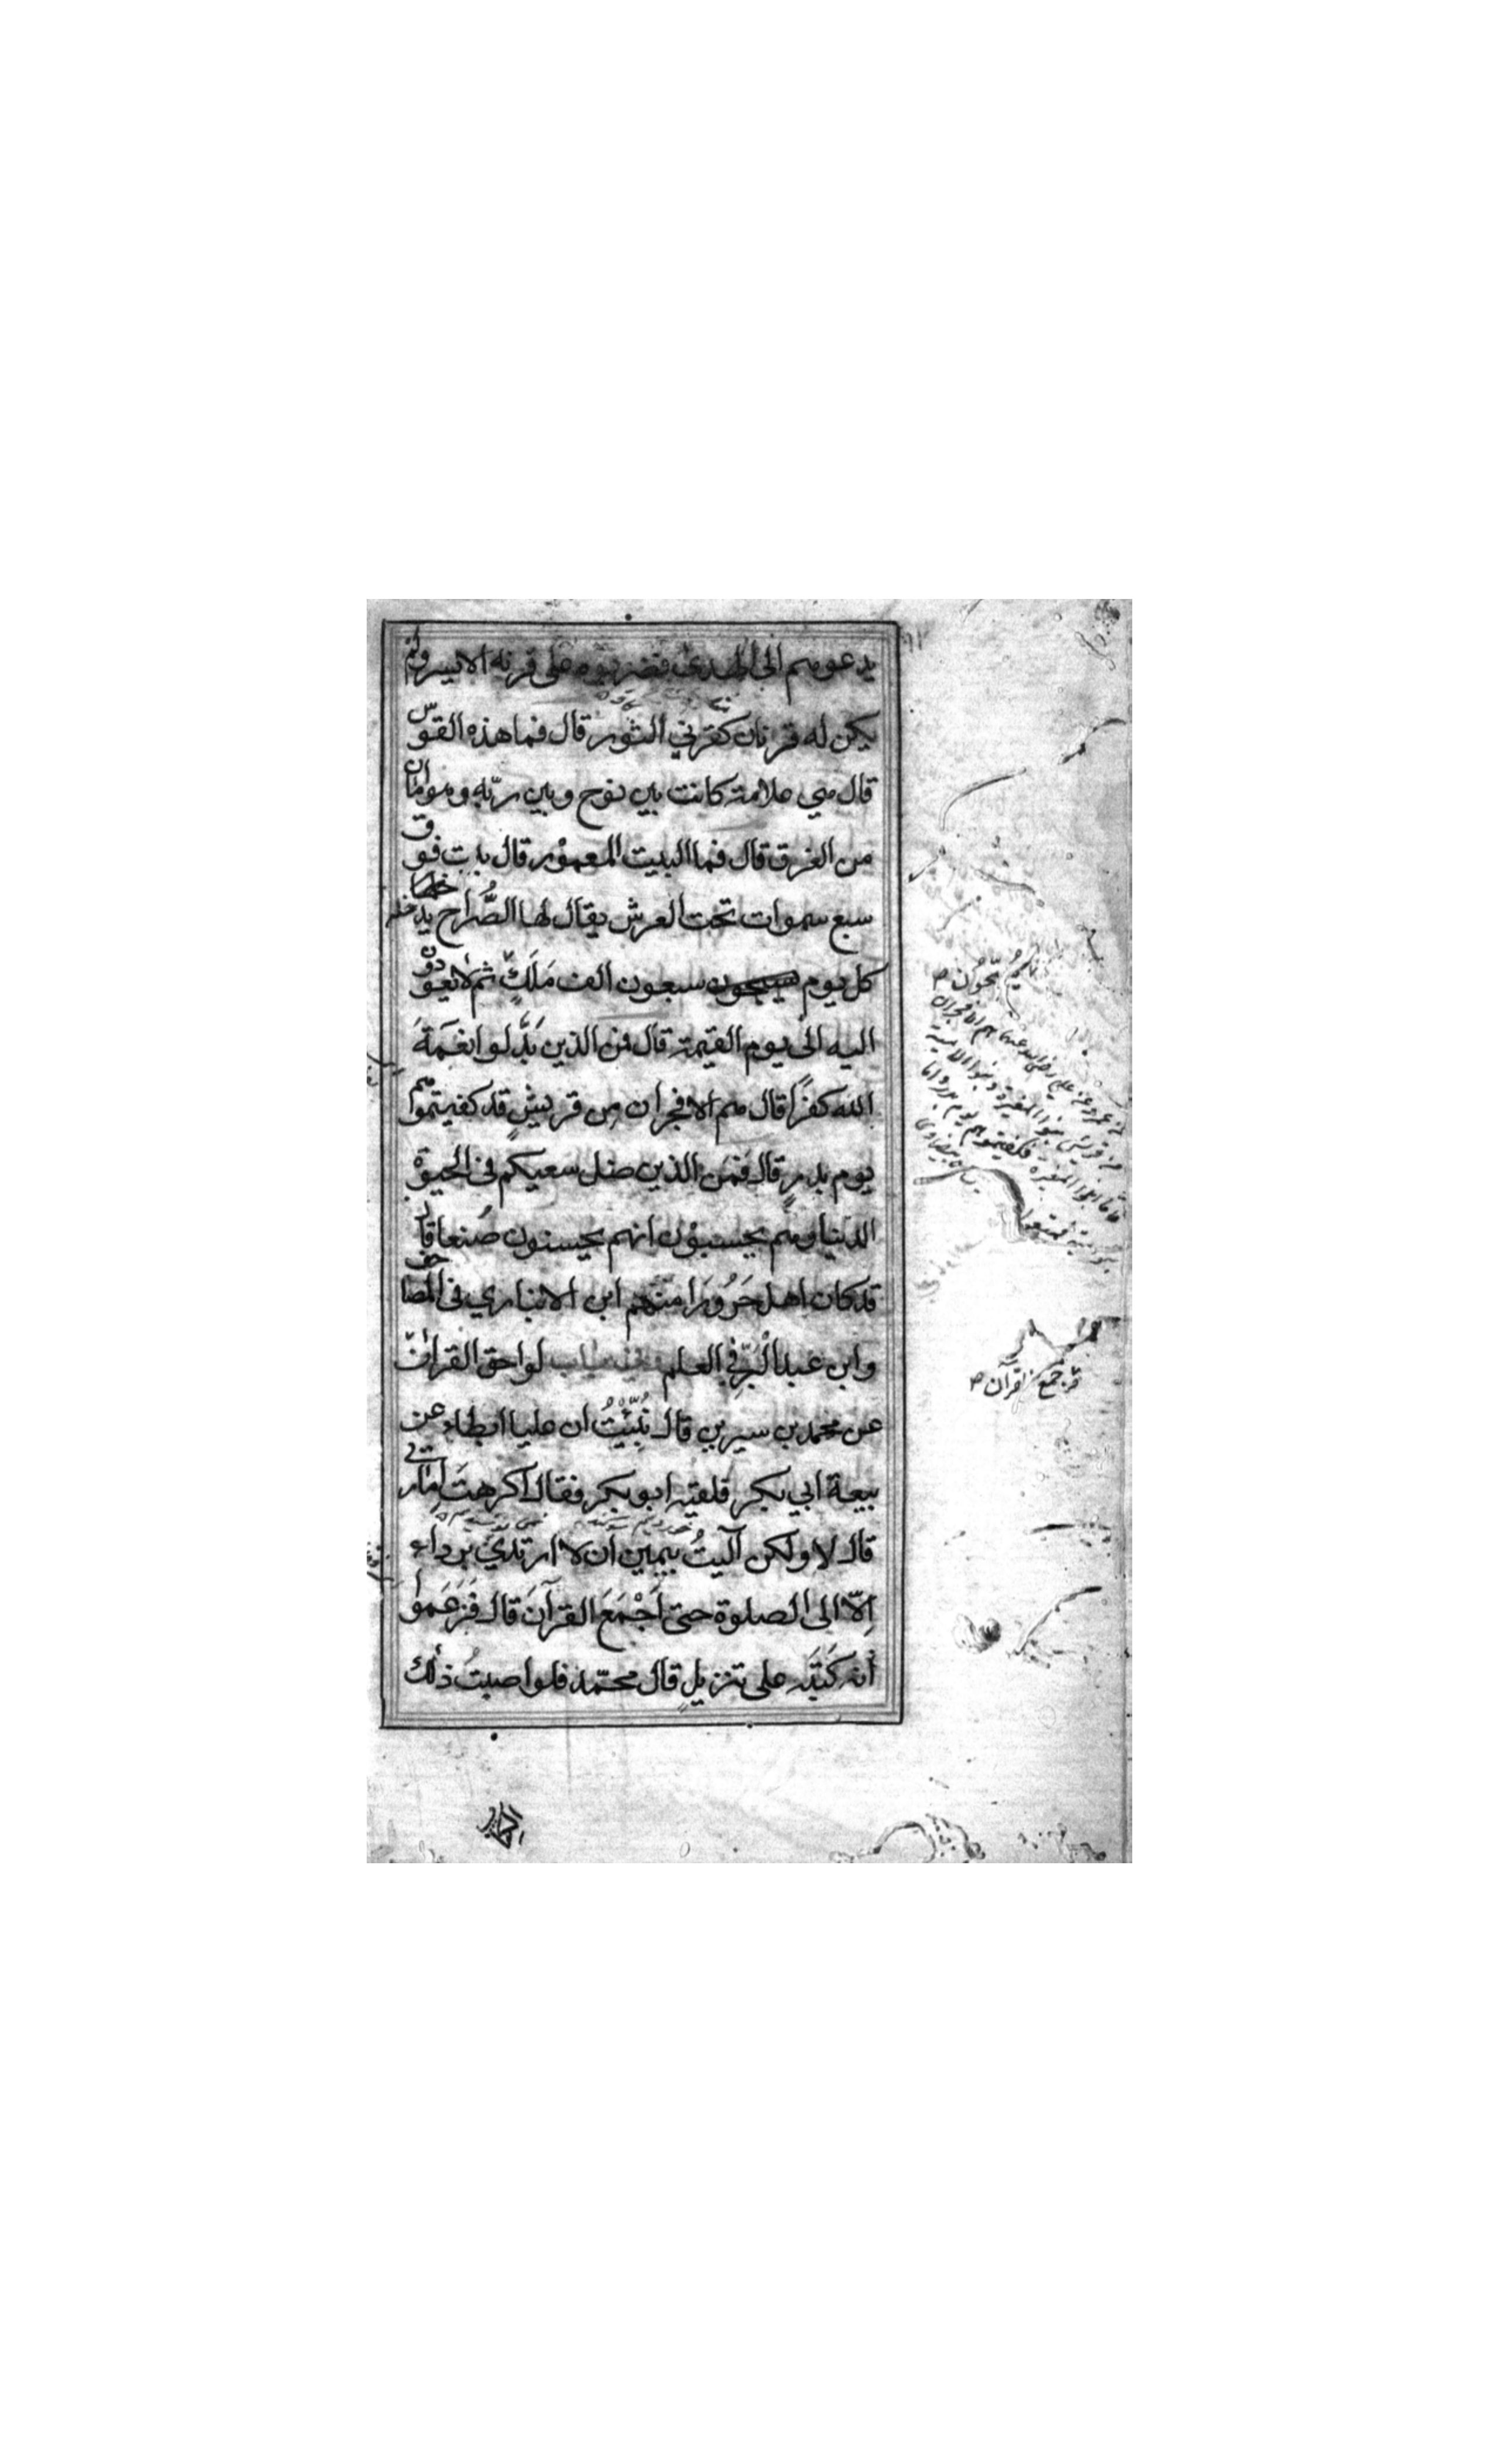 يدعوهم الى الهدى فضربوه على قرنه الايسر ولم
يكن له قرنان كقرني الثور قال فما هذه القوس
قال هي علامة كانت بين نوح وبين ربّه وهو امان
من الغرق قال فما البيت المعمور قال بيت فوق
سبع سموات تحت العرش يقال لها الضُّراح يدخله
كل يوم سبعون الف مَلَكٍ ثم لا يعودون
اليه الى يوم القيمة قال فمن الذين بَدَّلوا نِعْمَةَ
الله كفرًا قال هم الافجران من قريشٍ قد كفيتموهم
يوم بدرٍ قال فمَن الذين ضل سعيكم في الحيوة
الدنيا وهم يحسبون انهم يحسنون صُنعا قال
قد كان اهل حَرُورَا منهم ابن الانباري في المصاحف
وابن عبد الْبَرّ في العلم لواحق القرآن
عن محمد بن سيرين قال نُبِّئْتُ ان عليا ابطاء عن
بيعة ابي بكر فلقيه ابو بكر فقال اكرهتَ اِمارتي
قال لا ولكن آليتُ بيمين ان لا ارتدي برداء
اِلّا الى الصلوة حتى اَجْمَعَ القرآنَ قال فَزَعَموا
أنه كَتَبَه على تنزيلٍ قال محمّد فلو اصبتُ ذلك
جمع قرآن